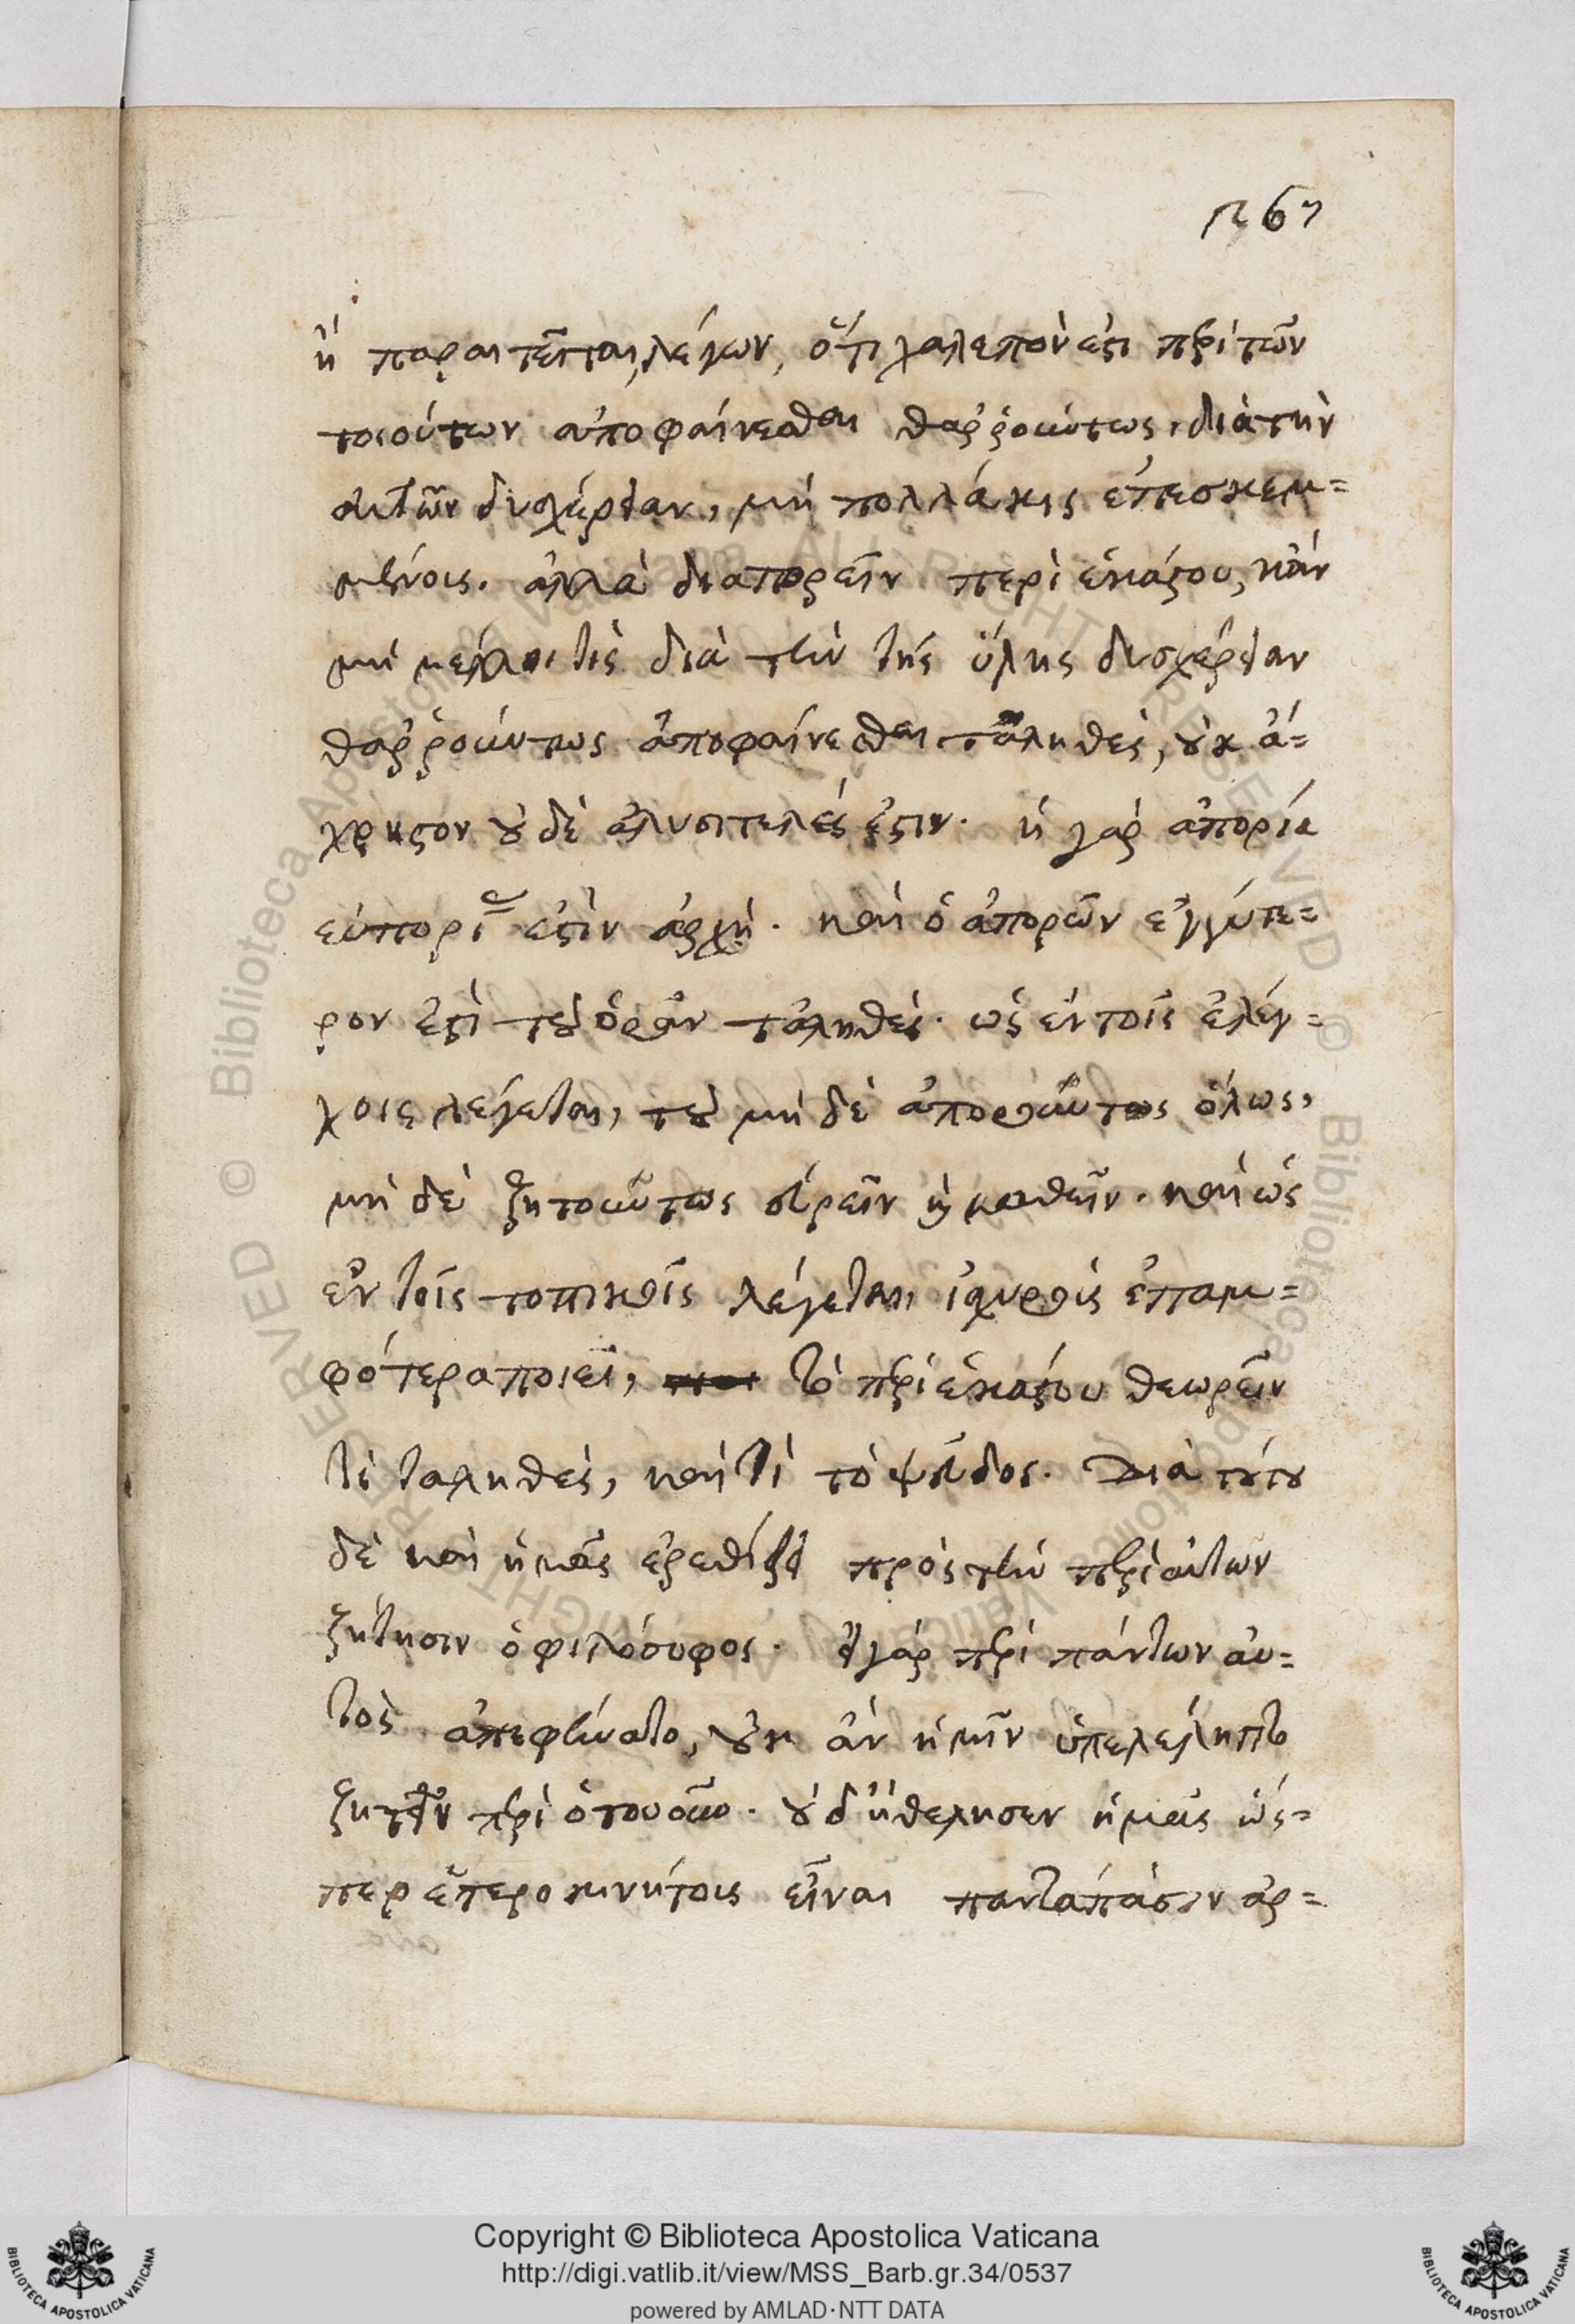 267
ἢ παραιτεῖται, λέγων, ὅτι χαλεπὸν ἐστι περὶ τῶν
τοιούτων ἀποφαίνεσθαι θαῤῥούντως, διὰ τὴν
αὐτῶν δυσχέρειαν, μὴ πολλάκις ἐπεσκεμ=
μένοις. ἀλλὰ διαπορεῖν περὶ ἑκάστου, κἂν
μὴ μέλλοι τὶς διὰ τὴν τῆς ὕλης δυσχέρειαν
θαῤῥούντως ἀποφαίνεσθαι τἀληθές, οὐκ ἄ=
χρηστον οὐδὲ ἀλυσιτελές ἐστιν. ἡ γὰρ ἀπορία
εὐπορίας ἐστὶν ἀρχή. καὶ ὁ ἀπορῶν ἐγγύτε=
ρον ἐστὶ τοῦ ὁρᾶν τἀληθές. ὡς ἐν τοῖς ἐλέγ=
χοις λέγεται, τοῦ μὴ δὲ ἀποροῦντος ὅλως,
μὴ δὲ ζητοῦντος εὑρεῖν ἢ μαθεῖν. καὶ ὡς
ἐν τοῖς τοπικοῖς λέγεται, ἰσχυροὺς ἐπαμ=
φότερα ποιεῖ, τὸ περὶ ἑκάστου θεωρεῖν
τί ταληθές, καὶ τί τὸ ψεῦδος. Διὰ τούτου
δὲ καὶ ἡμᾶς ἐρεθίζει πρὸς τὴν περὶ αὐτῶν
ζήτησιν ὁ φιλόσοφος. εἰ γὰρ περὶ πάντων αὐ=
τὸς ἀπεφήνατο, οὐκ ἂν ἡμῖν ὑπελέλειπτο
ζητεῖν περὶ ὁτουοῦν. οὐδ' ἠθέλησεν ἡμᾶς ὥς=
περ ἑτεροκινήτοις εἶναι παντάπασιν ἀρ=
Copyright © Biblioteca Apostolica Vaticana
http://digi.vatlib.it/view/MSS_Barb.gr.34/0537
powered by AMLAD·NTT DATA